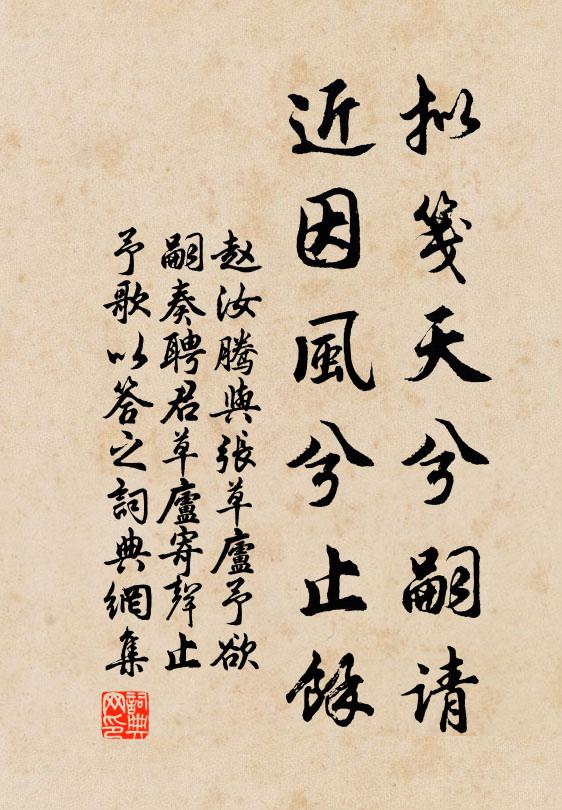 拟笺天兮嗣请
近因風兮止餘
赵汝腾與張草廬予欲
嗣奏聘君草廬寄聲止
予歌以答之詞典網集
詞典
网印